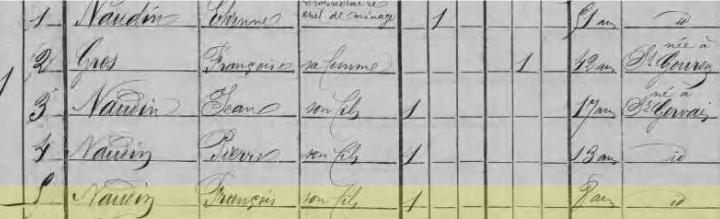 1 Naudin Etienne propriétaire chef de ménage 1 51 an id
2 Gros Françoise sa femme 1 42 an née à St Gour
3 Naudin Jean son fils 1 17 an né à St Gervais
4 Naudin Pierre son fils 1 13 an id
5 Naudin François son fils 1 8 an id